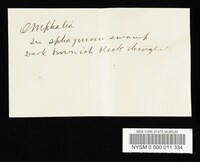 Omphalia
In sphagnum swamp
Dark brownish black throughout
NEW YORK STATE MUSEUM
NYSM 0 000 011 334